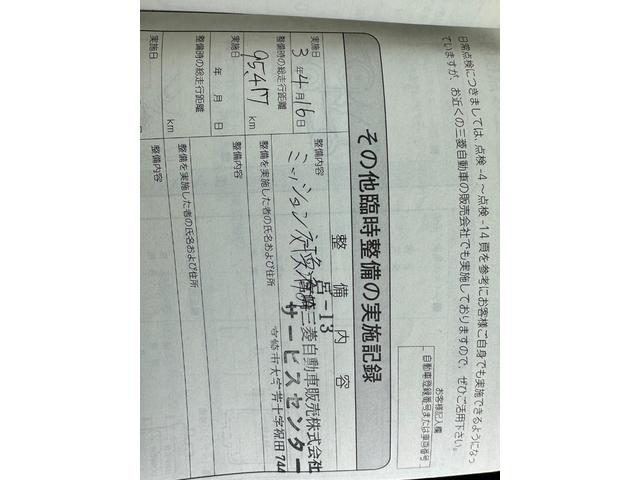 日常点検につきましては、点検-4～点検-14頁を参考にお客様ご自身でも実施できるようになっ
ていますが、お近くの三菱自動車の販売会社でも実施しておりますので、ぜひご活用下さい。
お客様記入欄
自動車登録番号または車両番号
その他臨時整備の実施記録
整備内容
実施日
3年4月16日
整備時の総走行距離
95,417 km
整備内容
ミッション交換
整備を実施した者の氏名および住所
宮-13
三菱自動車販売株式会社
サービスセンター
大字芳士字祝田744
実施日
年 月 日
整備時の総走行距離
km
整備内容
整備を実施した者の氏名および住所
実施日
整備内容